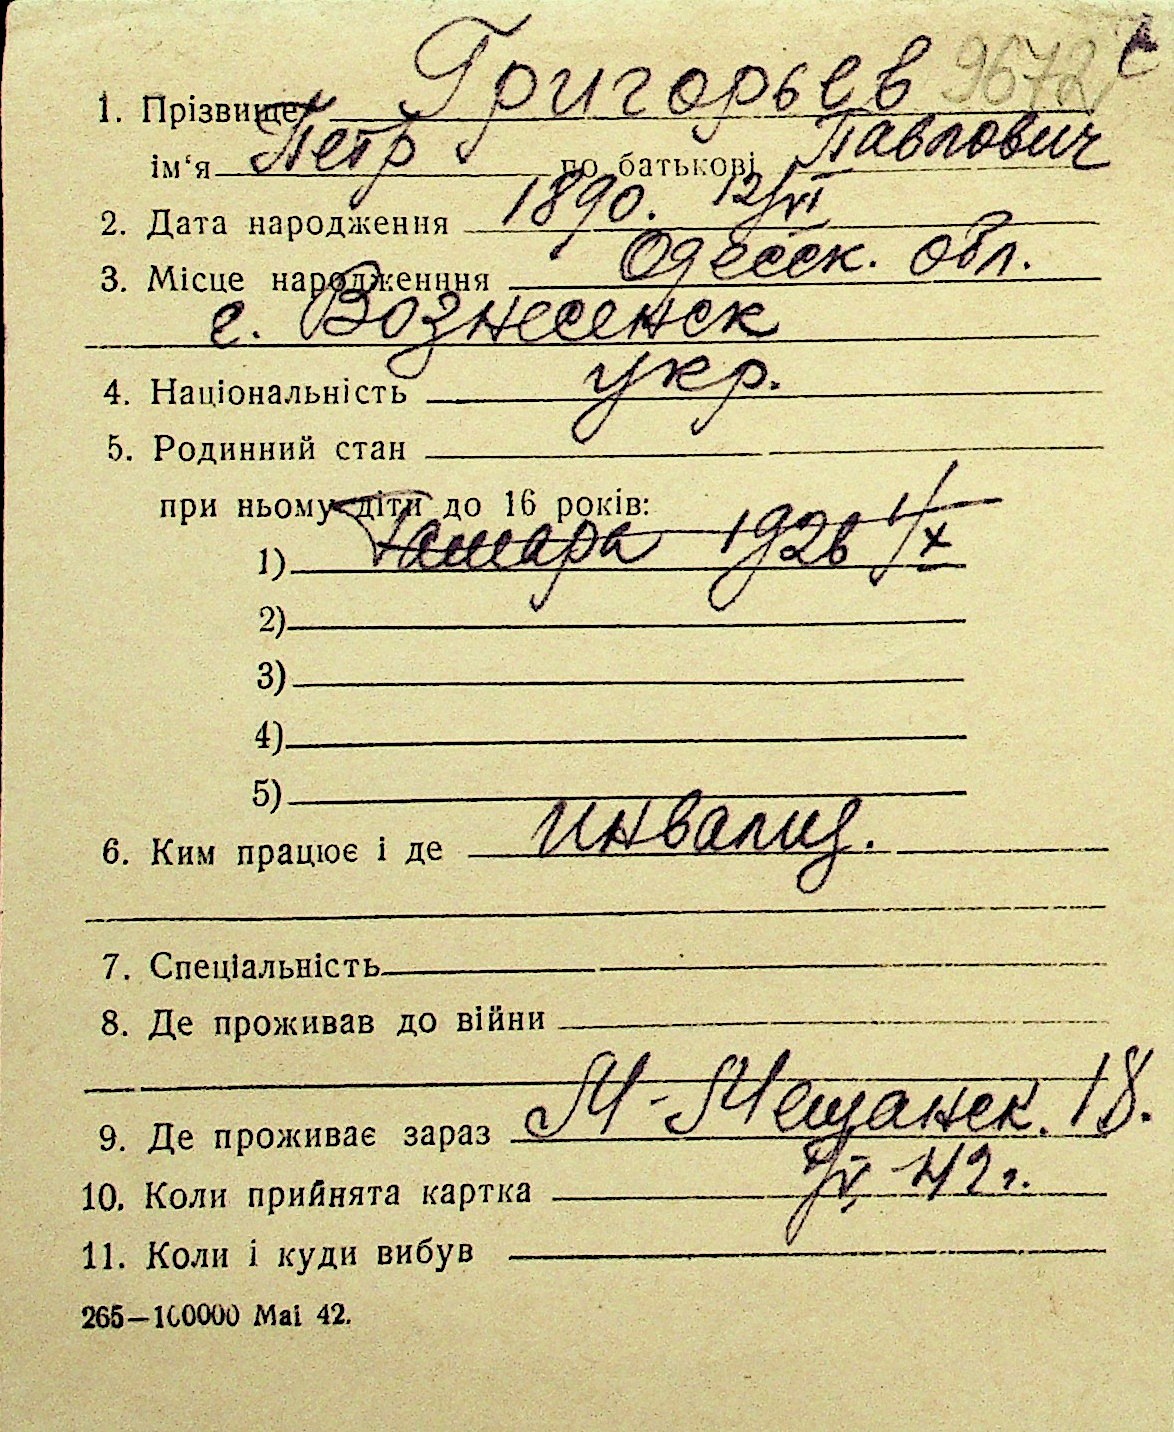 1. Прізвище Григорьев 9672
ім‘я Петр по батькові Павлович
2. Дата народження 1890. 12/VI
3. Місце народженння Одесск. обл.
с. Вознесенск
4. Національність укр.
5. Родинний стан
при ньому діти до 16 років:
1) Тамара 1926 1/X
2)
3)
4)
5)
6. Ким працює і де инвалид.
7. Спеціальність
8. Де проживав до війни
9. Де проживає зараз М-Мещанск. 18.
10. Коли прийнята картка 42 г.
11. Коли і куди вибув
265—100000 Маі 42.